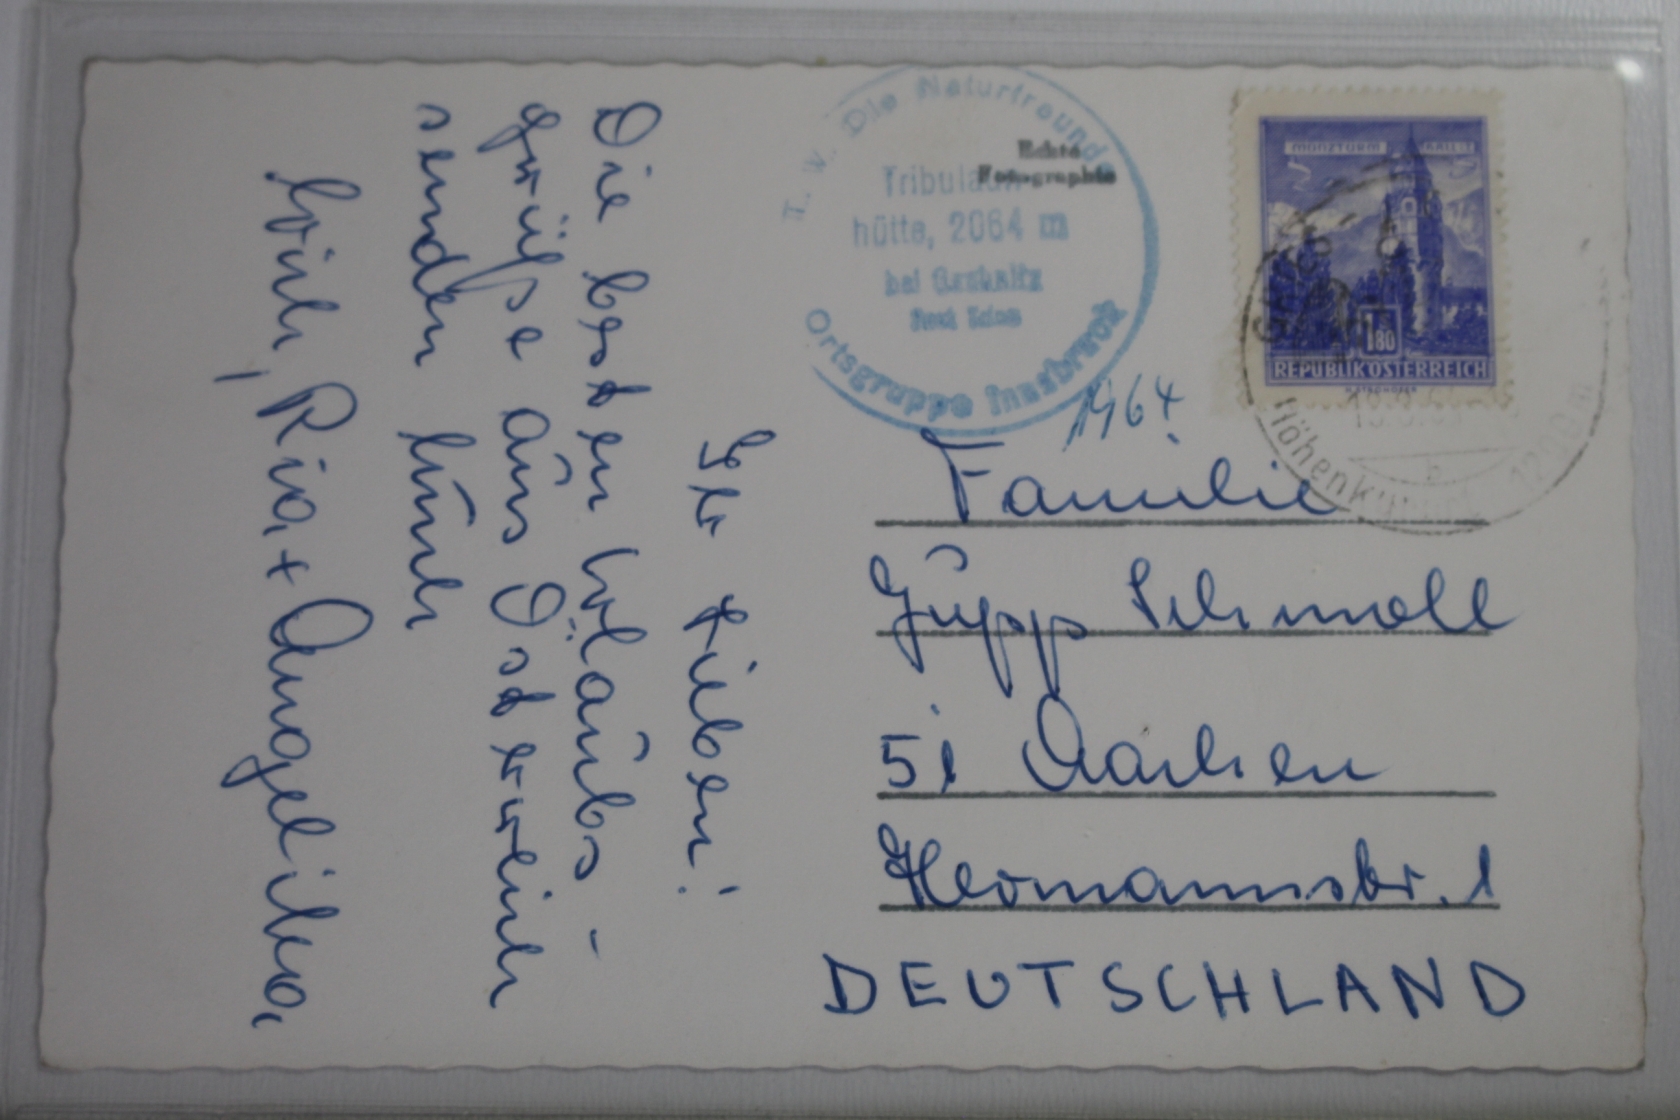 Ihr Lieben!
Die besten Urlaubs-
grüße aus Österreich
senden Euch
Willi, Ria + Angelika
T. V. Die Naturfreunde
Tribulaun
hütte, 2064 m
bei Gschnitz
Post Trins
Ortsgruppe Innsbruck
Echte
Fotographie
1964
MÜNZTURM HALL I. T.
S 1.80
REPUBLIK ÖSTERREICH
Höhenkurort 1200 m
Familie
Jupp Schmoll
51 Aachen
Hermannstr. 1
DEUTSCHLAND